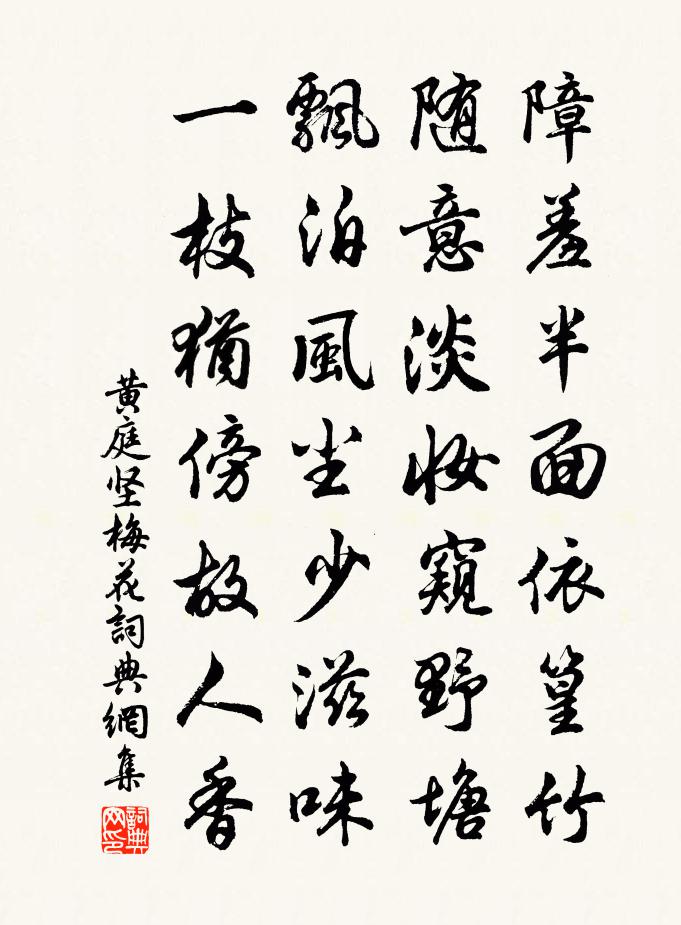 障羞半面依篁竹
随意淡妆窥野塘
飄泊風尘少滋味
一枝猶傍故人香
黄庭坚梅花詞典網集
詞典网印